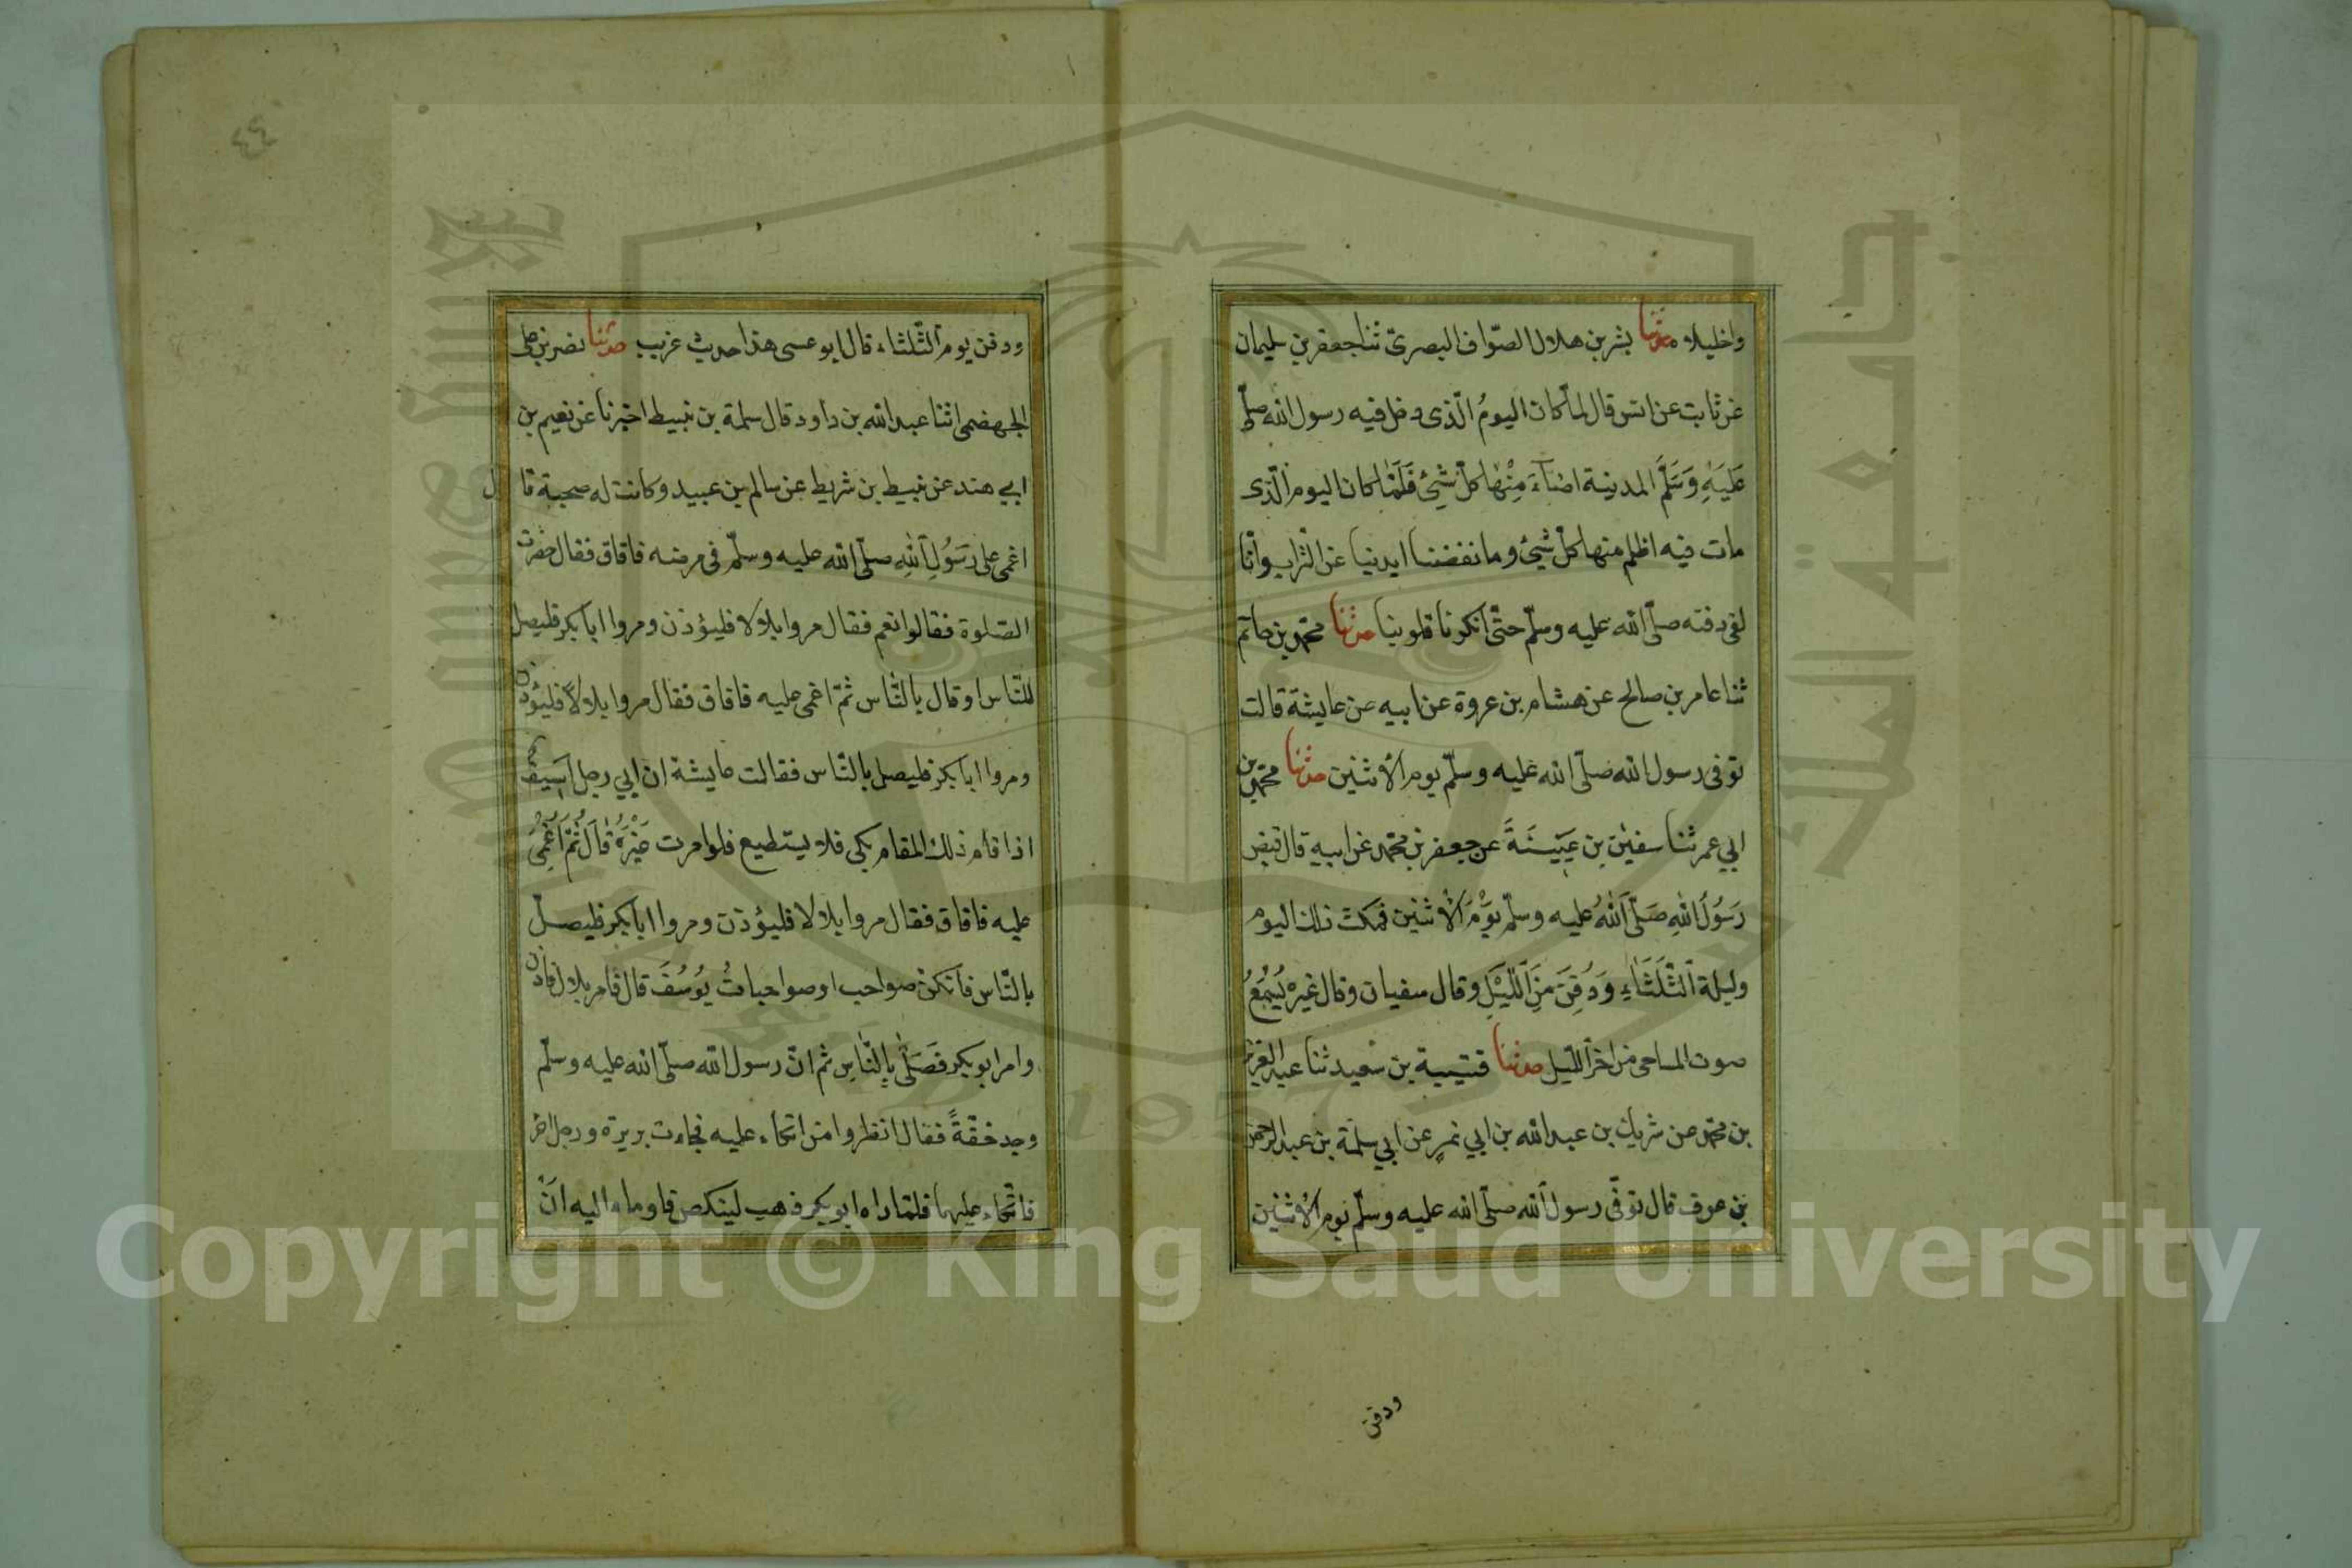 واخليلاه حدثنا بشر بن هلال الصوّاف البصريّ ثنا جعفر بن سليمان
عن ثابت عن انس قال لمّا كان اليومُ الّذى دخل فيه رسول الله صلّى
عَلَيْهِ وَسَلَّمَ المدينة اضاءَ مِنْهَا كلّ شئ فَلَمَّا كان اليوم الّذى
مات فيه اظلم منها كلّ شئ وما نفضنا ايدينا عن التراب وانّا
لفى دفنه صلّى الله عليه وسلّم حتّى انكرنا قلوبنا حدثنا محمّد بن حاتم
ثنا عامر بن صالح عن هشام بن عروة عن ابيه عن عايشة قالت
توفى رسول الله صلّى الله عليه وسلّم يوم الاثنين حدثنا محمّد بن
ابي عمر ثنا سفين بن عيَيْنَةَ عن جعفر بن محمّد عن ابيه قال قبض
رَسُولُ اللهِ صَلَّى اللهُ عليه وسلّم يَوْمَ الاثنين فمكث ذلك اليوم
وليلة الثَّلَثَاءِ وَدُفِنَ مِنَ اللَّيْلِ وقال سفيان وقال غيره يُسْمَعُ
صوت المساحى من اخر اللّيل حدثنا قتيبة بن سعيد ثنا عبد العزيز
بن محمّد عن شريك بن عبد الله بن ابي نمر عن ابي سلمة بن عبد الرحمن
بن عوف قال توفّى رسول الله صلّى الله عليه وسلّم يوم الاثنين
ودفن
٤٤
ودفن يوم الثّلثاء قال ابو عسى هذا حديث غريب حدثنا نصر بن على
الجهضمى اثنا عبد الله بن داود قال سلمة بن نبيط اخبرنا عن نعيم بن
ابي هند عن نبيط بن شريط عن سالم بن عبيد وكانت له صحبة قال
اغمى على رَسُولِ اللهِ صلّى الله عليه وسلّم فى مرضه فافاق فقال حضرت
الصّلوة فقالوا نعم فقال مروا بلالا فليؤذن ومروا ابا بكر فليصل
للنّاس او قال بالنّاس ثمّ اغمى عليه فافاق فقال مروا بلالاً فليؤذن
ومروا ابا بكر فليصل بالنّاس فقالت عايشة ان ابي رجل اسيف
اذا قام ذلك المقام بكى فلا يستطيع فلو امرت غَيْرَهُ قَالَ ثُمَّ اُغْمِىَ
عليه فافاق فقال مروا بلالا فليؤذن ومروا ابا بكر فليصلّ
بالنّاس فانكن صواحب او صواحباتُ يُوسُفَ قال فامر بلال فاذن
وامر ابو بكر فَصَلَّى بِالنَّاسِ ثم انّ رسول الله صلّى الله عليه وسلّم
وجد خفّةً فقال انظروا من اتكاء عليه فجاءت بريرة ورجل اخر
فاتّكاء عليهما فلمّا راه ابو بكر ذهب لينكص فاوماء اليه انْ
جامعة الملك سعود
1957
Copyright © King Saud University